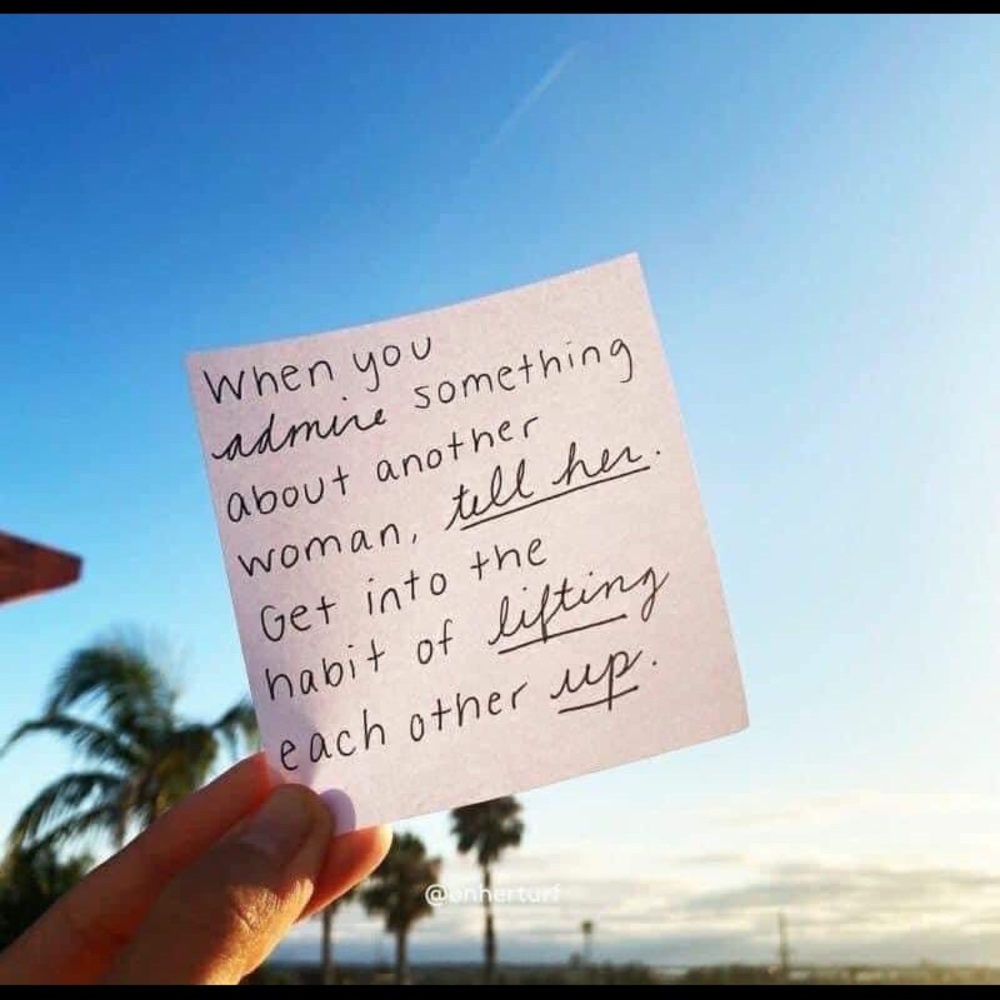 When you
admire something
about another
woman, tell her.
Get into the
habit of lifting
each other up.
@onherturf